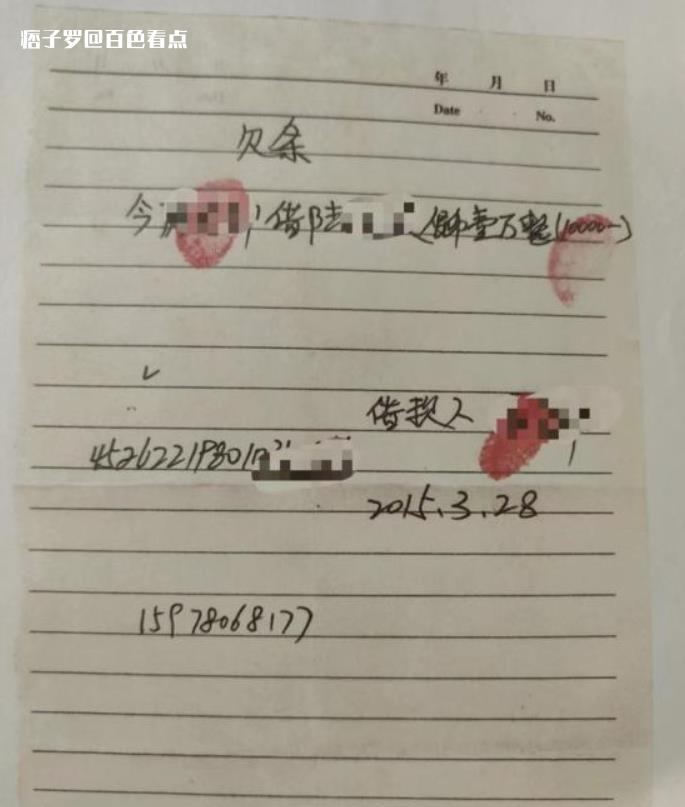 痞子罗@百色看点
年 月 日
Date No.
欠条
今 借陆 人币壹万整(10000-)
借款人
45262219801
2015.3.28
15978068177